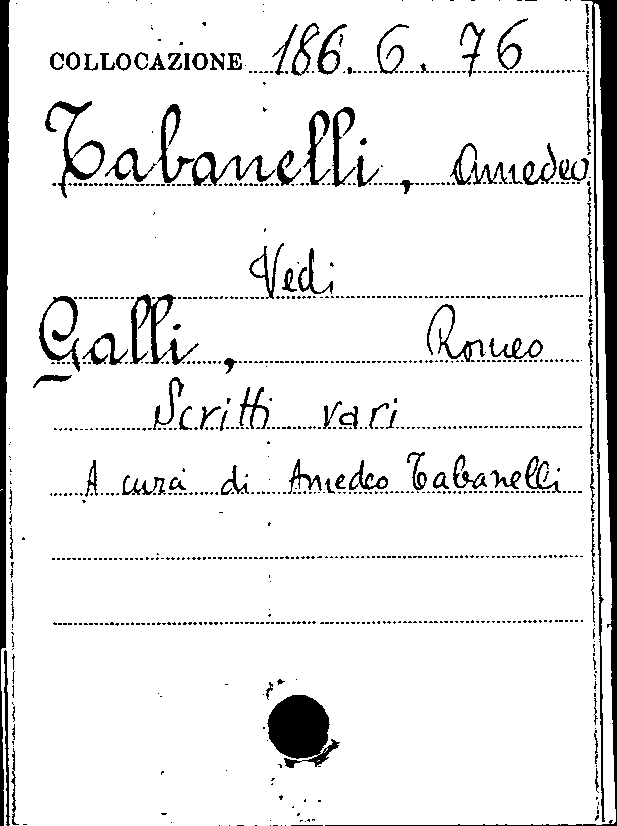 COLLOCAZIONE 186. 6. 76
Tabanelli, Amedeo
Vedi
Galli, Romeo
Scritti vari
A cura di Amedeo Tabanelli